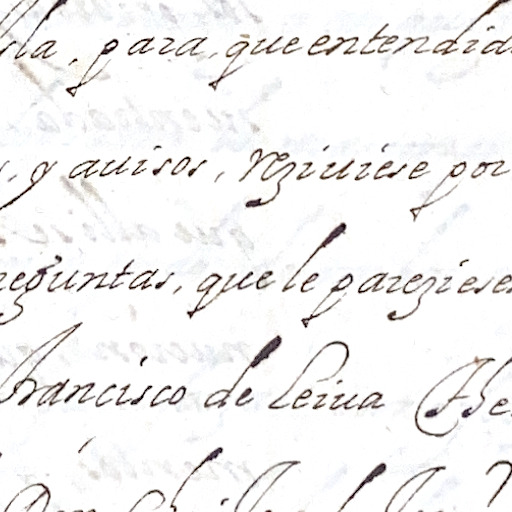 lla, para, que entendid
, y auisos, reziuiese por
reguntas, que le pareziesen
francisco de Leiua
Don